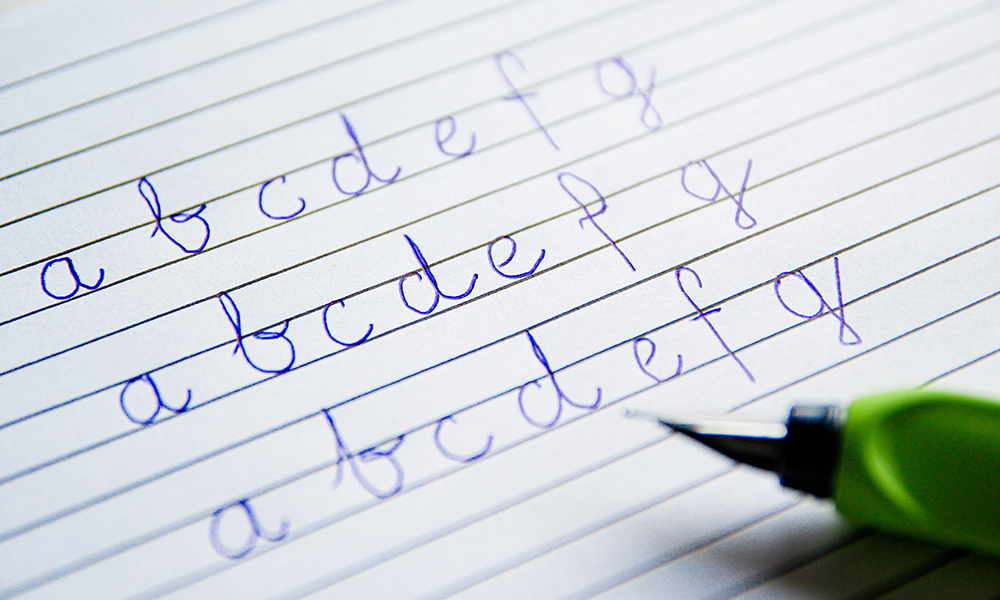 a b c d e f g
a b c d e f g
a b c d e f g